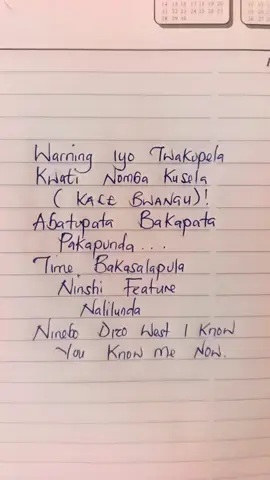 Warning Iyo Twakupela
Kwati Nomba Kusola
( KALE BWANGU)!
Abatupata Bakapata
Pakapunda...
Time Bakasalapula
Ninshi Feature
Nalilunda
Ninebo Dizo West I Know
You Know me Now.